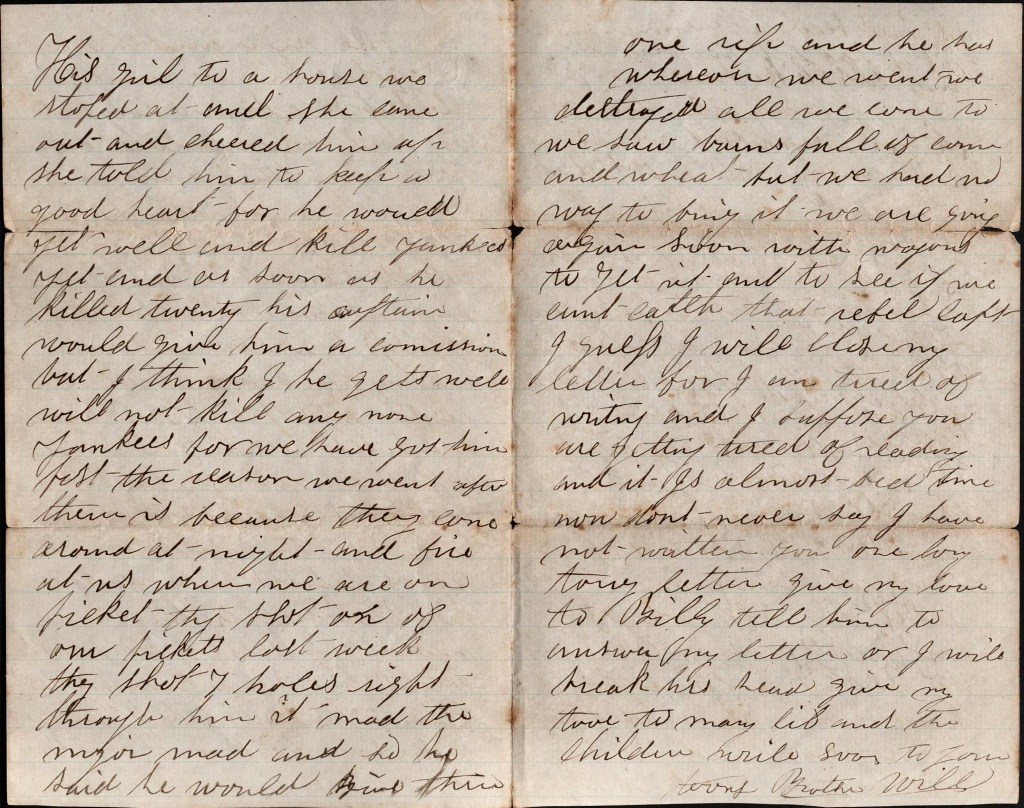 His girl to a house we
stoped at and she came
out and cheered him up
she told him to keep a
good heart for he would
get well and kill yankees
yet and as soon as he
killed twenty his captain
would give him a comission
but I think I he gets well
will not kill any more
yankees for we have got him
fast the reason we went after
them is because they come
around at night and fire
at us when we are on
picket they shot on of
our pickets last week
they shot 7 holes right
through him it mad the
major mad and so he
said he would give them
one rip and he has
whereon we went we
destroyed all we come to
we saw barns full of corn
and wheat but we had no
way to bring it we are going
again soon with wagons
to get it and to see if we
cant catch that rebel capt
I guess I will close my
letter for I am tired of
writng and I suppose you
are getting tired of reading
and it Is almost bed time
now dont never say I have
not written you one long
letter give my love
to Billy tell him to
answer my letter or I will
break his head give my
love to mary lib and the
children write soon to your
Brother Will